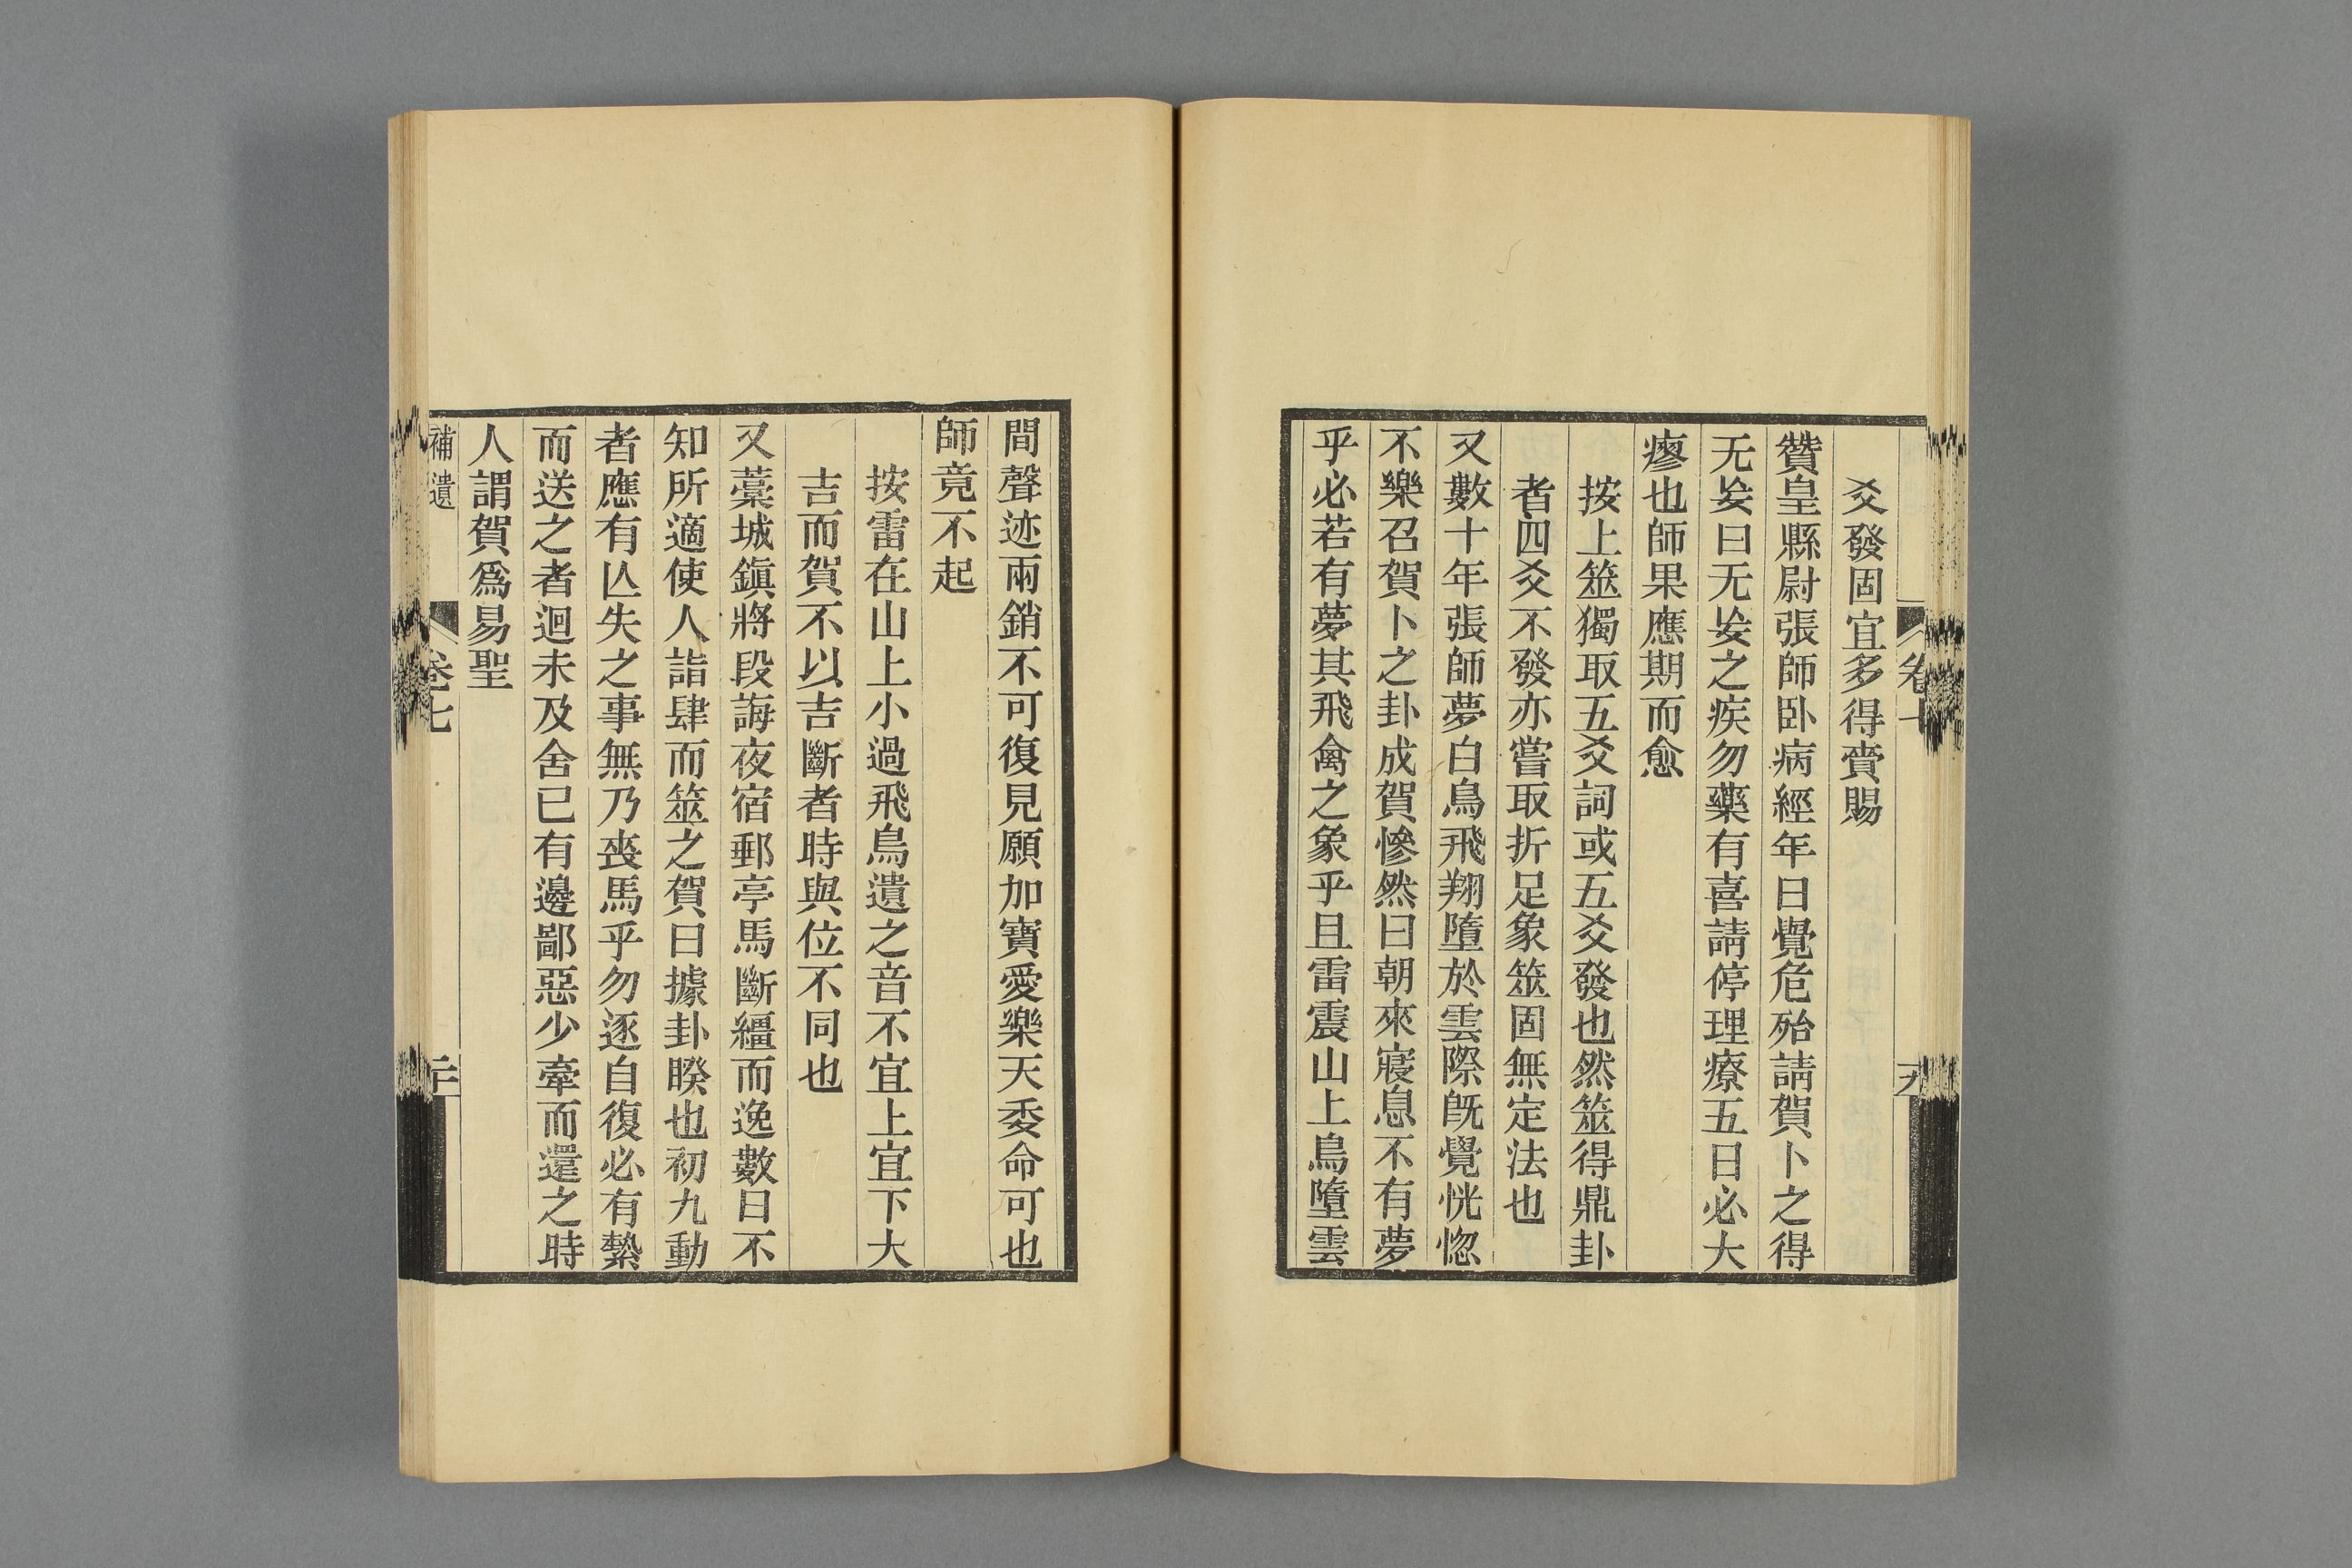 爻發固宜多得賚賜
贊皇縣尉張師卧病經年日覺危殆請賀卜之得
无妄曰无妄之疾勿藥有喜請停理療五日必大
瘳也師果應期而愈
按上筮獨取五爻詞或五爻發也然筮得鼎卦
者四爻不發亦嘗取折足象筮固無定法也
又數十年張師夢白鳥飛翔墮於雲際旣覺恍惚
不樂召賀卜之卦成賀慘然曰朝來寢息不有夢
乎必若有夢其飛禽之象乎且雷震山上鳥墮雲
間聲迹兩銷不可復見願加寶愛樂天委命可也
師竟不起
按雷在山上小過飛鳥遺之音不宜上宜下大
吉而賀不以吉斷者時與位不同也
又藁城鎭將段誨夜宿郵亭馬斷繮而逸數日不
知所適使人詣肆而筮之賀曰據卦睽也初九動
者應有亾失之事無乃喪馬乎勿逐自復必有縶
而送之者迴未及舍已有邊鄙惡少牽而還之時
人謂賀爲易聖
補遺
卷七